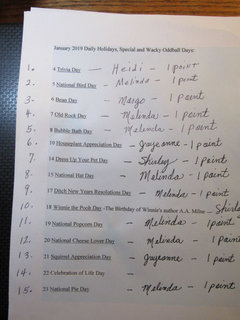 January 2019 Daily Holidays, Special and Wacky Oddball Days:
1. 4 Trivia Day — Heidi — 1 point
2. 5 National Bird Day — Melinda — 1 point
3. 6 Bean Day — Margo — 1 point
4. 7 Old Rock Day — Melinda — 1 point
5. 8 Bubble Bath Day — Melinda — 1 point
6. 10 Houseplant Appreciation Day — Guyeanne — 1 point
7. 14 Dress Up Your Pet Day — Shirley — 1 point
8. 15 National Hat Day — Melinda — 1 point
9. 17 Ditch New Years Resolutions Day — Melinda — 1 point
10. 18 Winnie the Pooh Day -The Birthday of Winnie's author A.A. Milne —
11. 19 National Popcorn Day — Melinda — 1 point
12. 20 National Cheese Lover Day — Melinda — 1 point
13. 21 Squirrel Appreciation Day — Guyeanne — 1 point
14. 22 Celebration of Life Day —
15. 23 National Pie Day — Melinda — 1 point